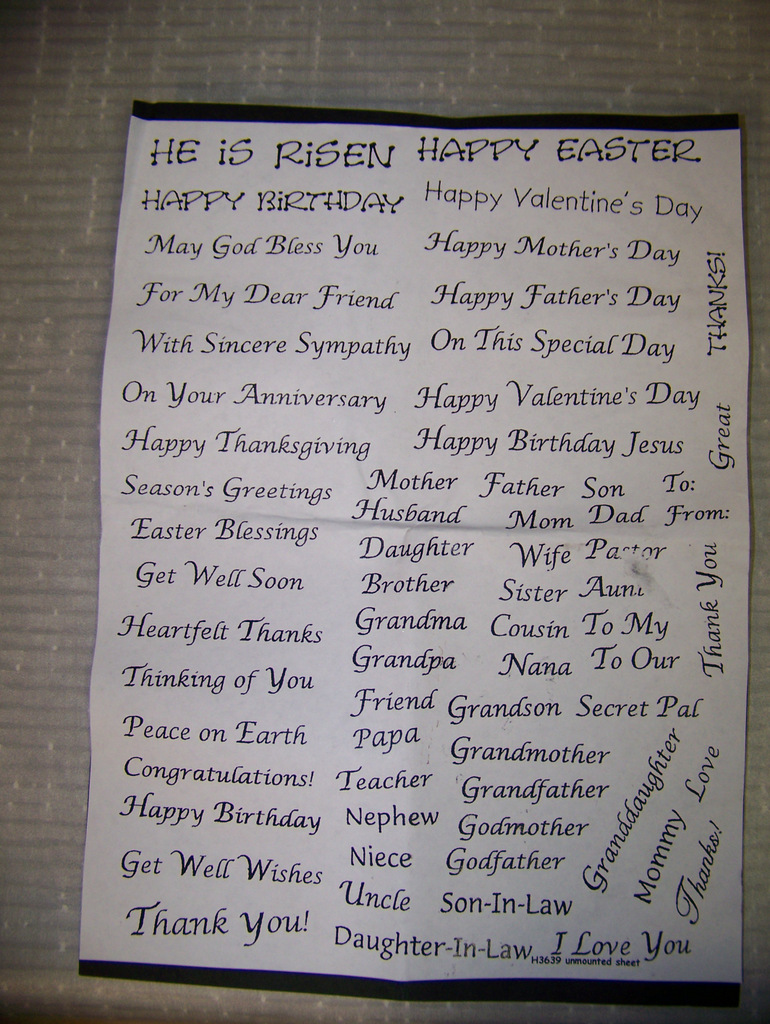 HE iS RiSEN HAPPY EASTER
HAPPY BiRTHDAY Happy Valentine's Day
May God Bless You Happy Mother's Day
For My Dear Friend Happy Father's Day
THANKS!
With Sincere Sympathy On This Special Day
On Your Anniversary Happy Valentine's Day
Happy Thanksgiving Happy Birthday Jesus
Great
Season's Greetings Mother Father Son To:
Husband Mom Dad From:
Easter Blessings
Daughter Wife Pastor
Get Well Soon Brother Sister Aunt
Thank You
Heartfelt Thanks Grandma Cousin To My
Grandpa Nana To Our
Thinking of You
Friend Grandson Secret Pal
Peace on Earth Papa Grandmother
Congratulations! Teacher Grandfather
Happy Birthday Nephew Godmother
Granddaughter
Love
Mommy
Thanks!
Get Well Wishes Niece Godfather
Uncle Son-In-Law
Thank You!
Daughter-In-Law I Love You
H3639 unmounted sheet